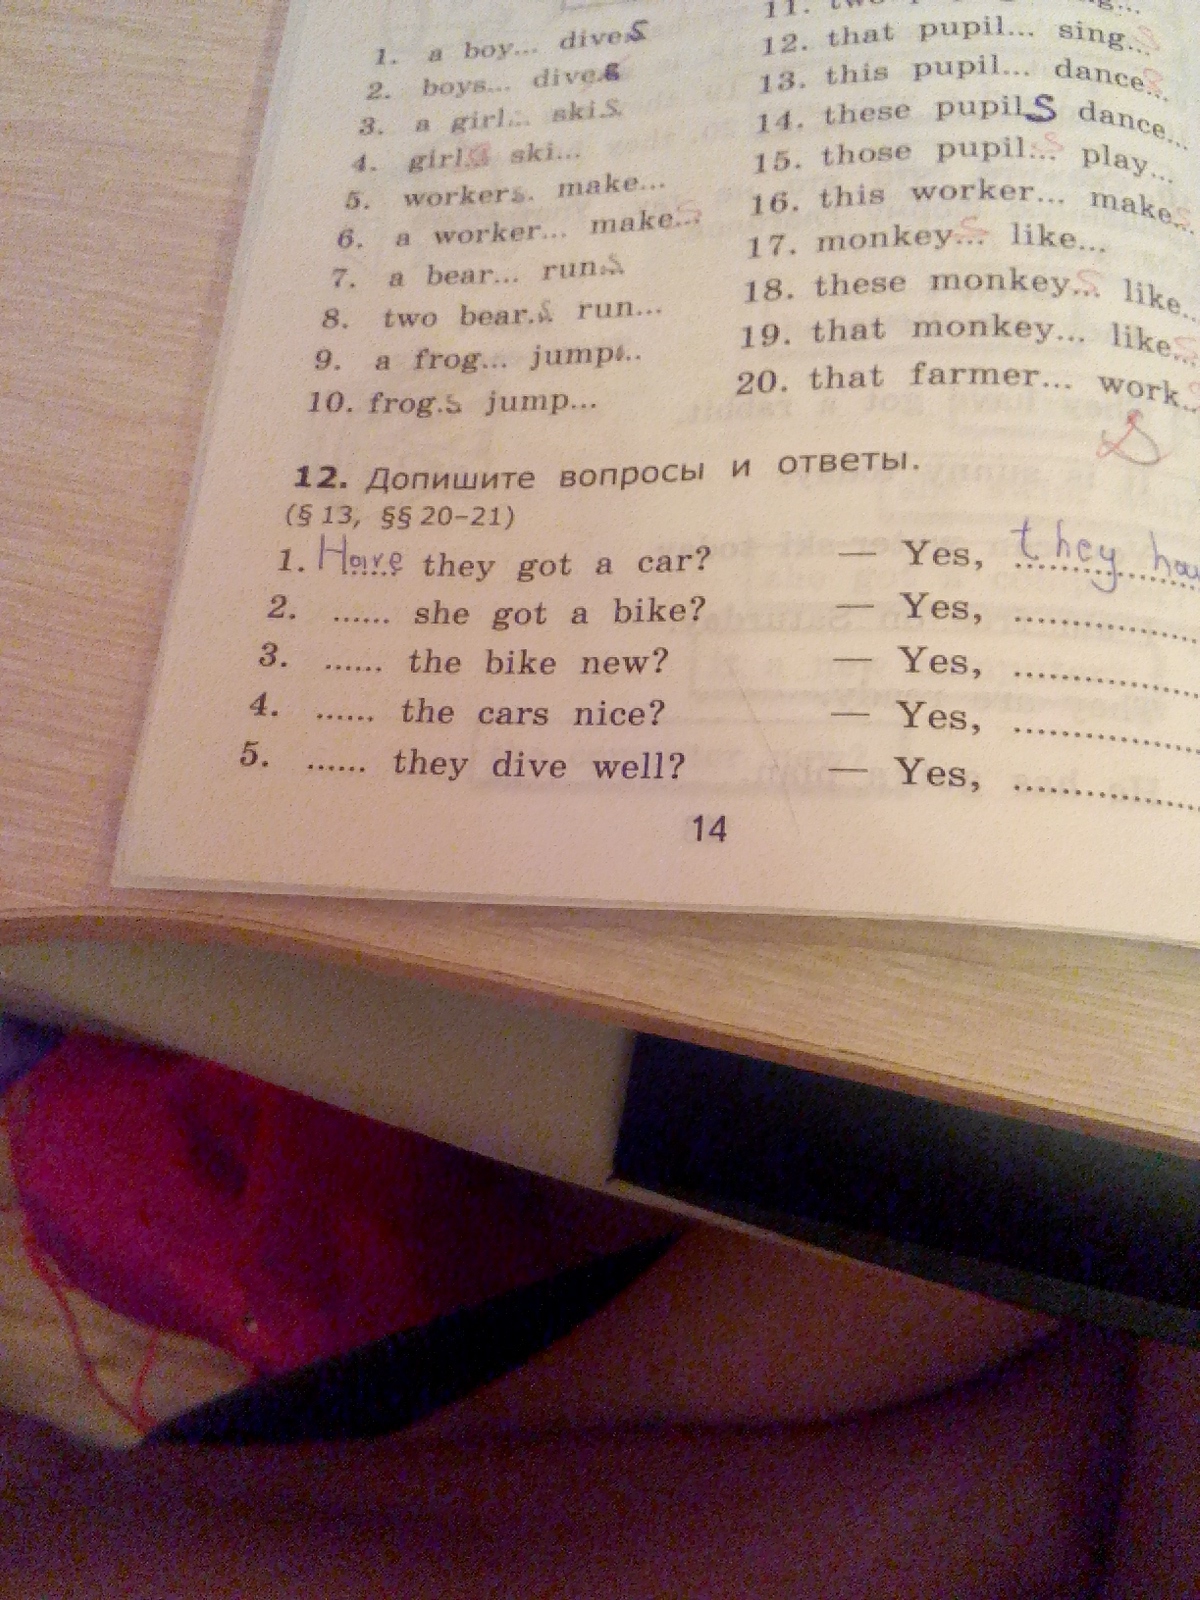 1. a boy... dives
2. boys... dives
3. a girl... skis.
4. girls ski...
5. workers. make...
6. a worker... makes
7. a bear... runs
8. two bear.s run...
9. a frog... jumps..
10. frog.s jump...
11. two
12. that pupil... sing...s
13. this pupil... dance...s
14. these pupils dance...
15. those pupil...s play...
16. this worker... make...s
17. monkey...s like...
18. these monkey...s like...
19. that monkey... like...s
20. that farmer... work...
12. Допишите вопросы и ответы.
(§ 13, §§ 20–21)
1. Have they got a car? — Yes, they
2. ...... she got a bike? — Yes, ..................
3. ...... the bike new? — Yes, ..................
4. ...... the cars nice? — Yes, ..................
5. ...... they dive well? — Yes, ..................
14